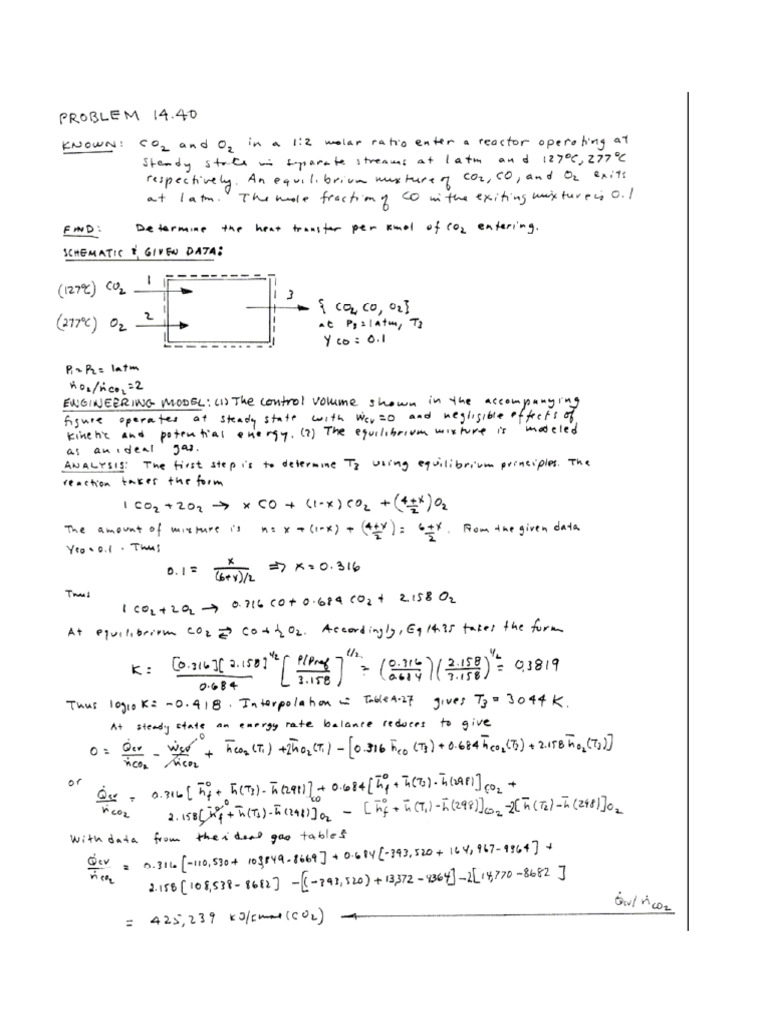 PROBLEM 14.40
KNOWN: CO2 and O2 in a 1:2 molar ratio enter a reactor operating at
steady state in separate streams at 1 atm and 127°C, 277°C
respectively. An equilibrium mixture of CO2, CO, and O2 exits
at 1 atm. The mole fraction of CO in the exiting mixture is 0.1
FIND: Determine the heat transfer per kmol of CO2 entering.
SCHEMATIC & GIVEN DATA:
(127°C) CO2 1
(277°C) O2 2
3
{CO2, CO, O2}
at P3=1atm, T3
yco = 0.1
P1=P2=1atm
ṅO2/ṅCO2=2
ENGINEERING MODEL: (1) The control volume shown in the accompanying
figure operates at steady state with Ẇcv=0 and negligible effects of
kinetic and potential energy. (2) The equilibrium mixture is modeled
as an ideal gas.
ANALYSIS: The first step is to determine T3 using equilibrium principles. The
reaction takes the form
1 CO2 + 2O2 → x CO + (1-x) CO2 + ((4+x)/2) O2
The amount of mixture is n = x + (1-x) + ((4+x)/2) = (6+x)/2. From the given data
yco = 0.1. Thus
0.1 = x/((6+x)/2) ⇒ x = 0.316
Thus
1 CO2 + 2O2 → 0.316 CO + 0.684 CO2 + 2.158 O2
At equilibrium CO2 ⇄ CO + ½O2. Accordingly, Eq 14.35 takes the form
K = [0.316][2.158]^1/2 / 0.684 [(P/Pref)/3.158]^1/2 = (0.316/0.684)(2.158/3.158)^1/2 = 0.3819
Thus log10 K = -0.418. Interpolation in Table A-27 gives T3 = 3044 K.
At steady state an energy rate balance reduces to give
0 = Q̇cv/ṅCO2 - Ẇcv/ṅCO2 0 + h̄CO2(T1) + 2h̄O2(T1) - [0.316 h̄CO(T3) + 0.684 h̄CO2(T3) + 2.158 h̄O2(T3)]
or
Q̇cv/ṅCO2 = 0.316[h̄°f + h̄(T3) - h̄(298)]CO + 0.684[h̄°f + h̄(T3) - h̄(298)]CO2 +
2.158[h̄°f 0 + h̄(T3) - h̄(298)]O2 - [h̄°f + h̄(T1) - h̄(298)]CO2 - 2[h̄(T2) - h̄(298)]O2
With data from the ideal gas tables
Q̇cv/ṅCO2 = 0.316[-110,530 + 103,849 - 8669] + 0.684[-393,520 + 164,967 - 9364] +
2.158[108,538 - 8682] - [(-393,520) + 13,372 - 9364] - 2[14,770 - 8682]
= 425,239 kJ/kmol (CO2)
Q̇cv/ṅCO2